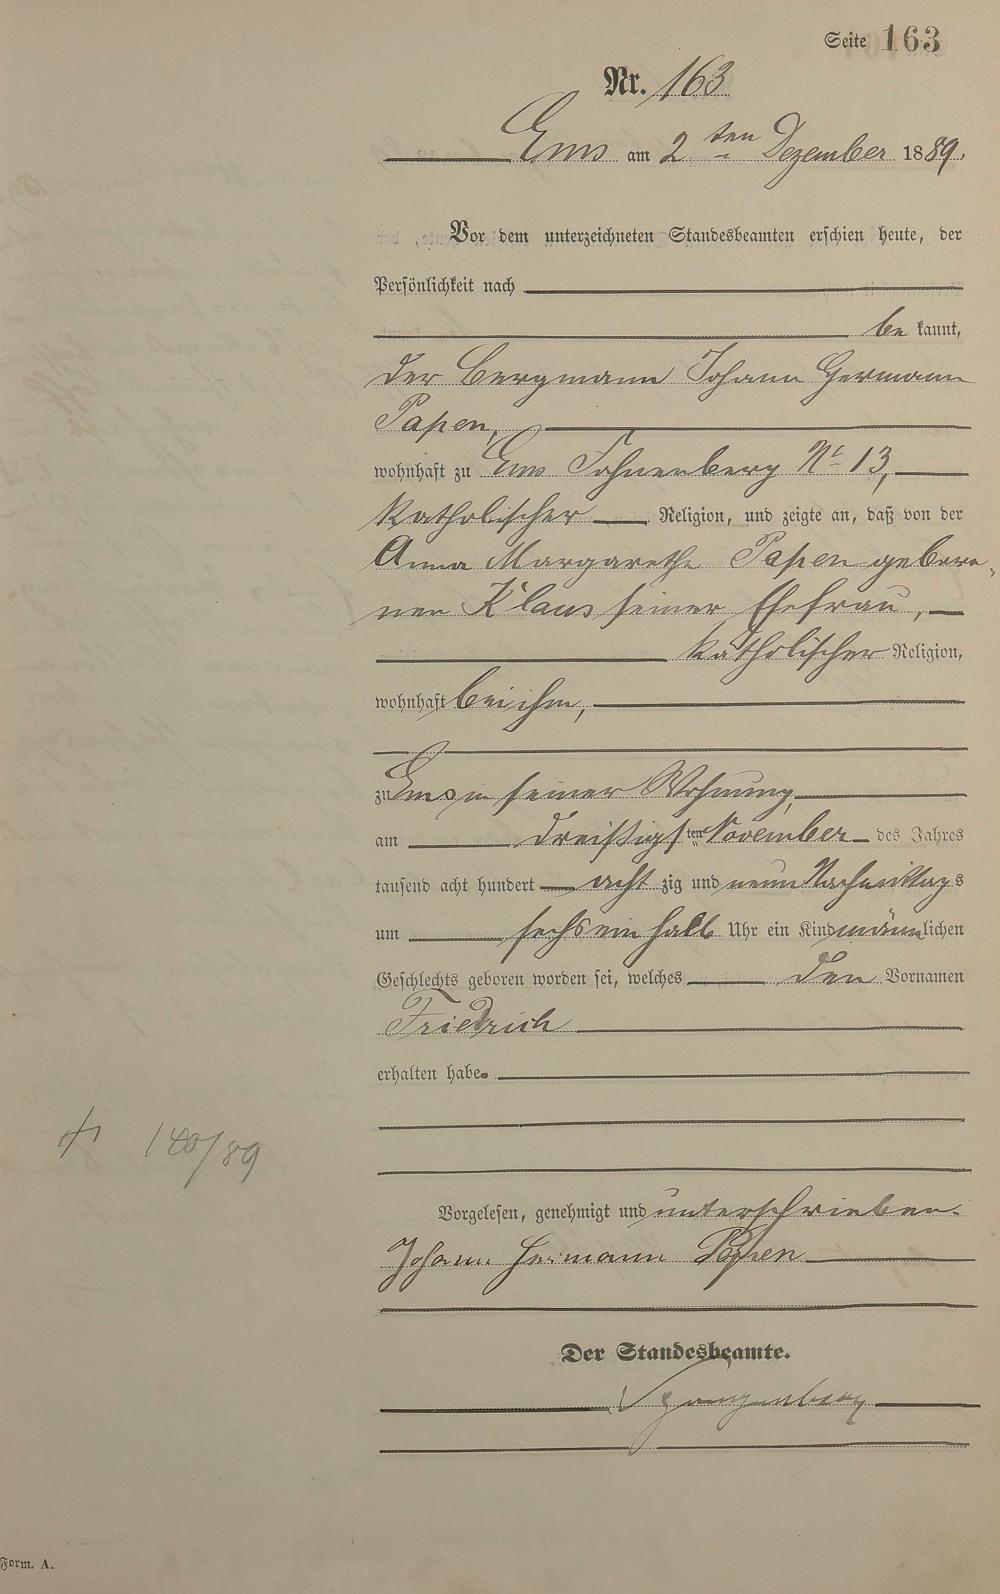 Seite 163
Nr. 163
Ems am 2ten Dezember 1889.
Vor dem unterzeichneten Standesbeamten erschien heute, der
Persönlichkeit nach
be kannt,
der Bergmann Johann Hermann
Papen,
wohnhaft zu Ems No 13,
katholischer Religion, und zeigte an, daß von der
Anna Margarethe Papen gebore-
nen Klaus seiner Ehefrau,
katholischer Religion,
wohnhaft bei ihm,
zu Ems in seiner Wohnung,
am dreißigsten November des Jahres
tausend acht hundert acht zig und neun Nachmittags
um sechs ein halb Uhr ein Kind männlichen
Geschlechts geboren worden sei, welches den Vornamen
Friedrich
erhalten habe.
Vorgelesen, genehmigt und unterschrieben.
Johann Hermann Papen
Der Standesbeamte.
140/89
Form. A.